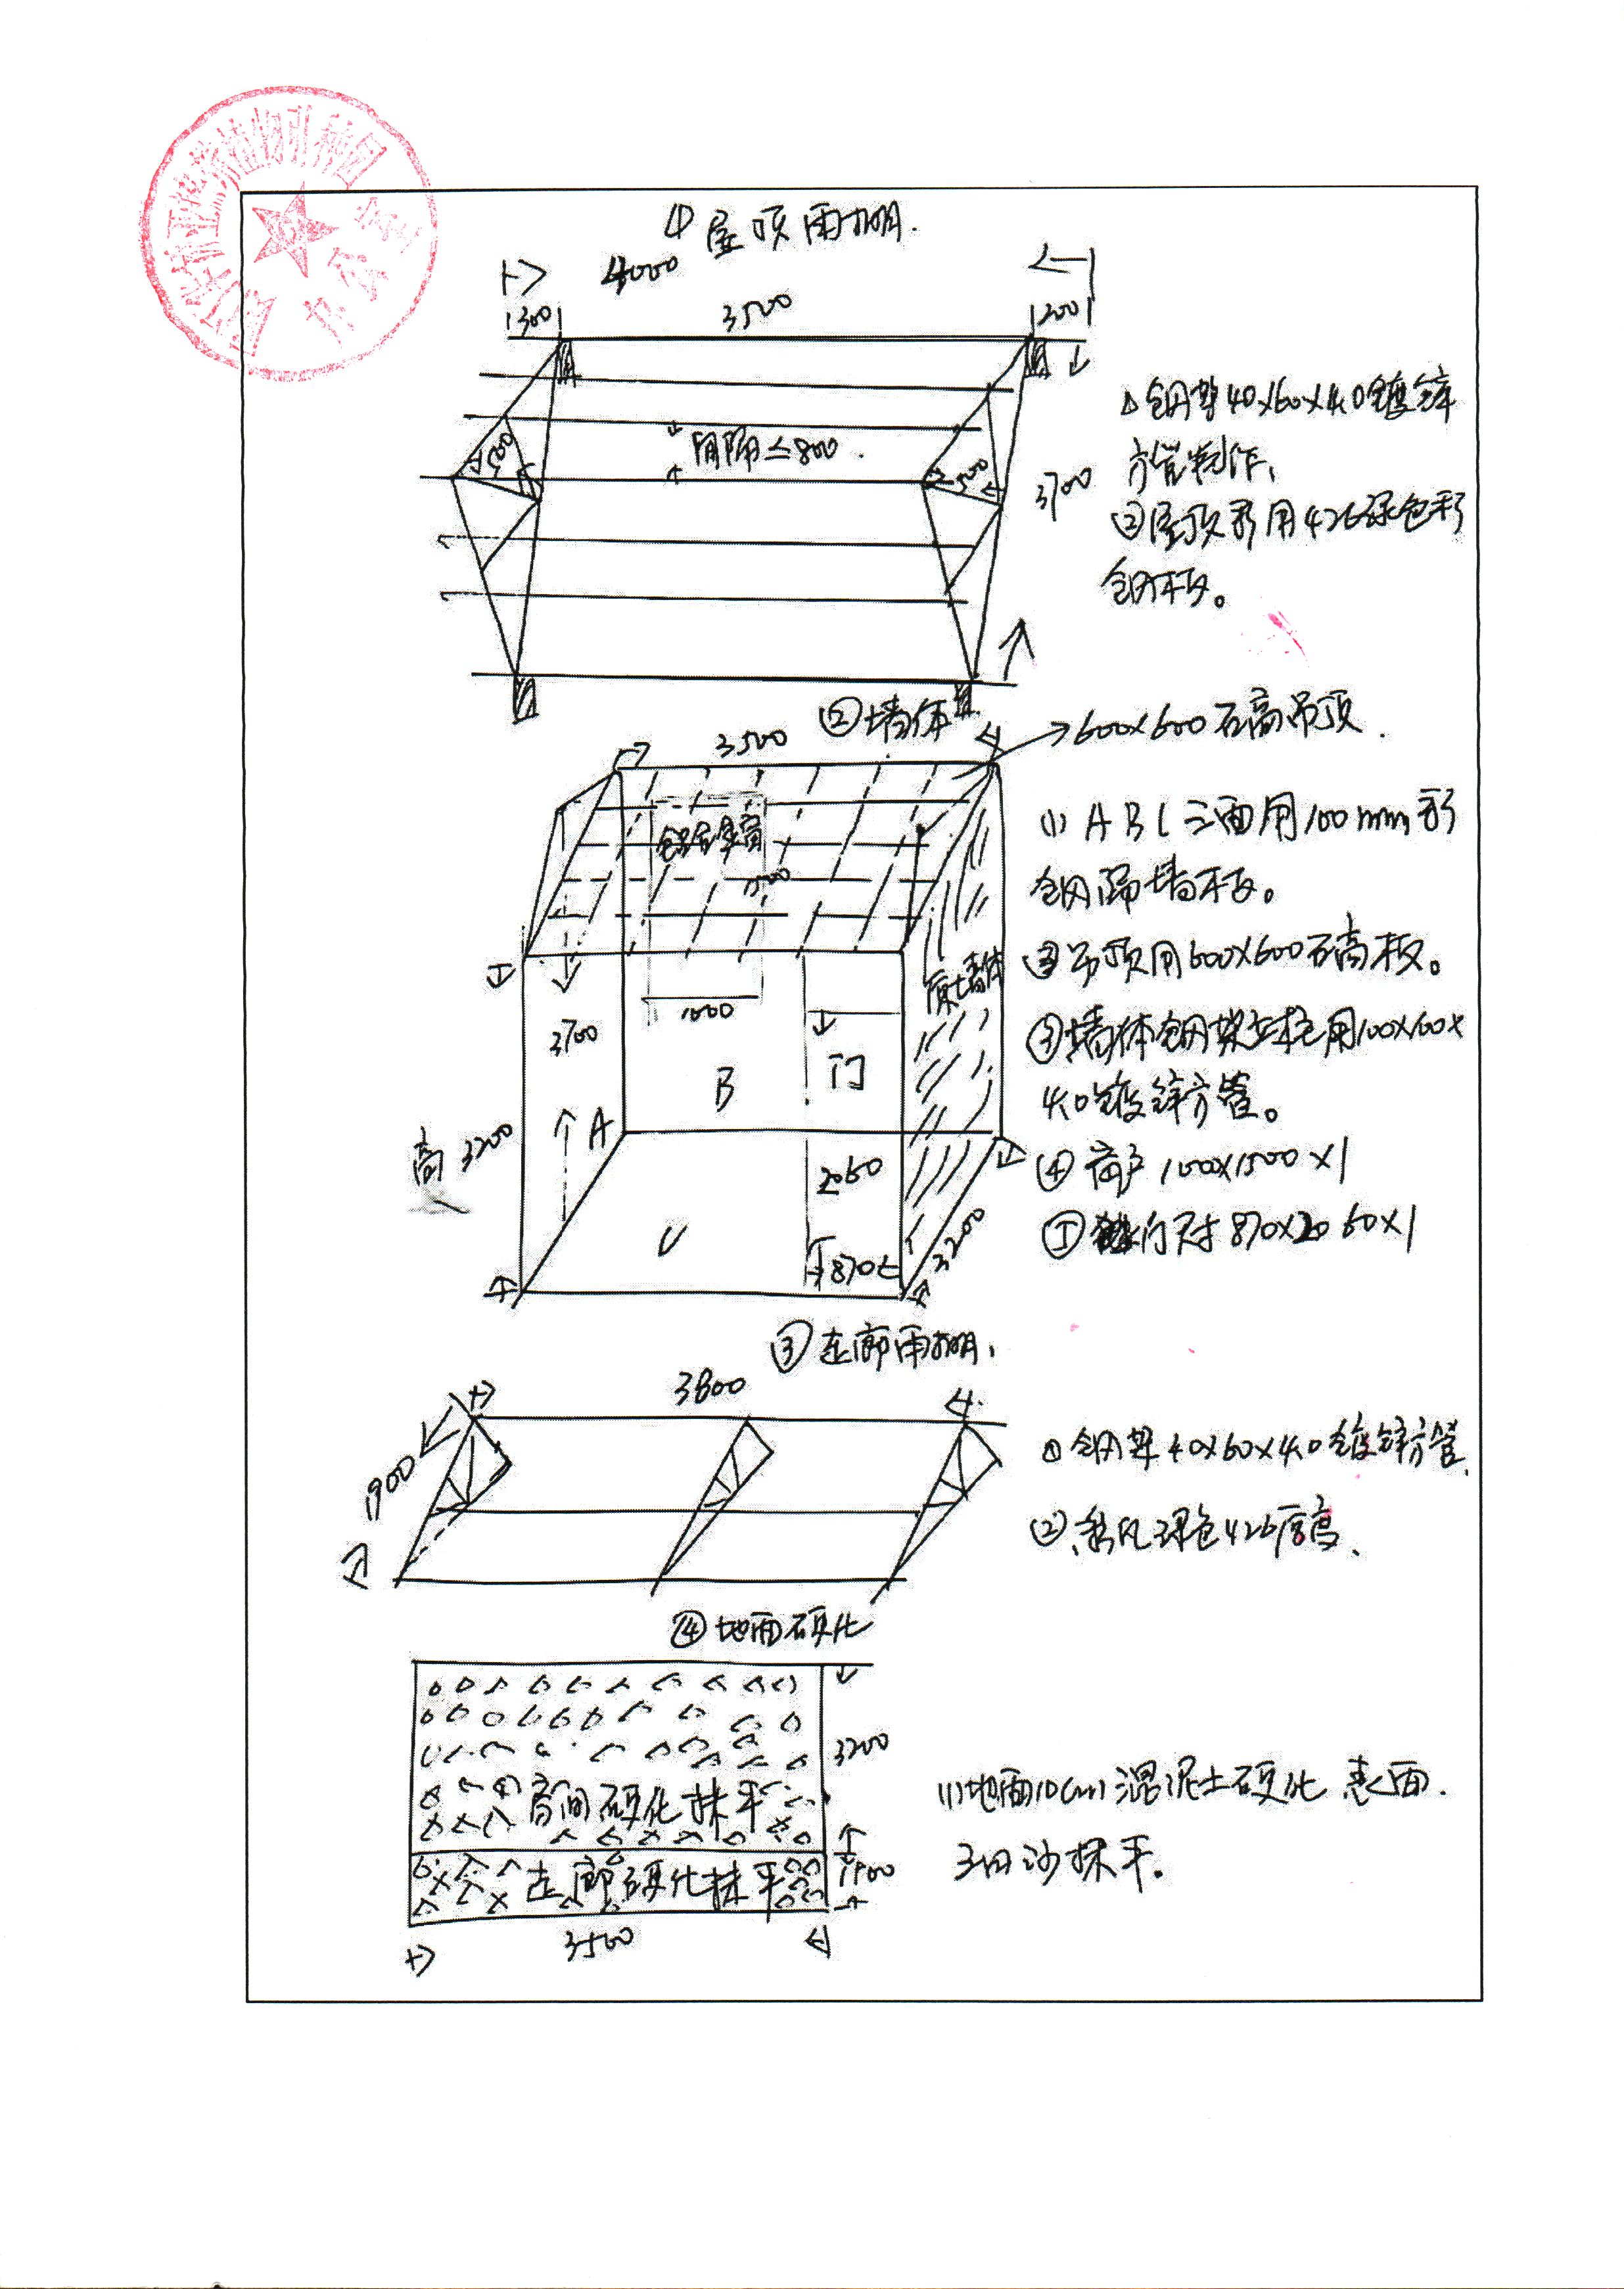 ①屋顶雨棚.
4000
300
3500
200
500
间隔≤800.
500
3700
①钢架40×60×4.0镀锌
方管制作、
②屋顶采用426绿色彩
钢板。
②墙体
3500
600×600石膏吊顶.
铝合金窗
1500
1000
原墙体
3700
高3200
A
B
C
门
2060
870
3200
(1)ABC三面用100mm彩
钢隔墙板。
②吊顶用600×600石膏板。
③墙体钢架立柱用100×100×
4.0镀锌方管。
④窗户1000×1500×1
⑤门尺寸870×2060×1
③走廊雨棚、
3800
1900
①钢架40×60×4.0镀锌方管、
②彩瓦绿色426厚度、
④地面硬化
3200
房间硬化抹平
走廊硬化抹平
1900
3500
(1)地面10cm混泥土硬化表面.
沙抹平。